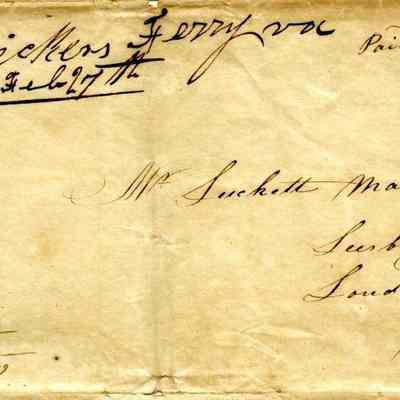 ickers Ferry va
Feb 27th
Pai
Mr Luckett Ma
Lees b
Loud